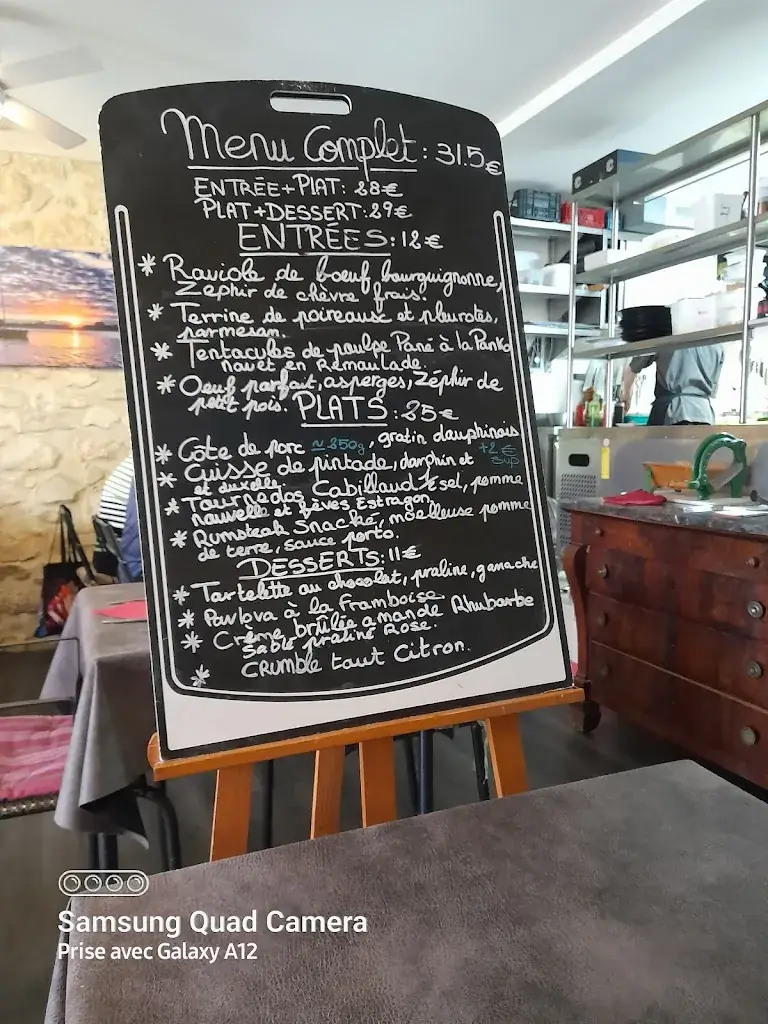 Menu Complet: 31.5€
ENTRÉE+PLAT: 28€
PLAT+DESSERT: 29€
ENTRÉES: 12€
* Raviole de boeuf bourguignonne,
Zephir de chèvre frais.
* Terrine de poireaux et pleurotes,
parmesan.
* Tentacules de poulpe Pané à la Panko
navet en Rémoulade
* Oeuf parfait, asperges, Zéphir de
petit pois.
PLATS: 25€
* Côte de porc ~350g, gratin dauphinois
+2€ sup
* Cuisse de pintade, darphin et
et duxelle.
* Tournedos Cabillaud, pomme
nouvelle et fèves Estragon.
* Rumsteak Snacké, moelleuse pomme
de terre, sauce porto.
DESSERTS: 11€
* Tartelette au chocolat, praline, ganache
* Pavlova à la Framboise.
* Crème brûlée amande Rhubarbe
Sablé praliné Rose.
* CRUMBLE tout Citron.
Samsung Quad Camera
Prise avec Galaxy A12